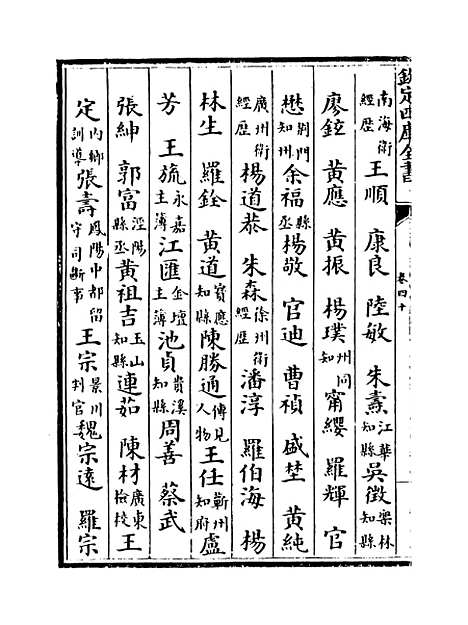 欽定四庫全書
卷四十
南海衛經歷王順　康良　陸敏　朱燾江華知縣吳徵欒林知縣
廖鉉　黃應　黃振　楊璞州同知　甯纓　羅輝　官
懋荆門知州余福縣丞楊敬　官迪　曹禎　盛埜　黃純
廣州衛經歷楊道恭　朱森徐州衛經歷潘淳　羅伯海　楊
林生　羅銓　黃道寳應知縣陳勝通傳見人物王任蘄州知府盧
芳　王旒永嘉主簿江匯金壇主簿池貞貴溪知縣周善　蔡武
張紳　郭富涇陽縣丞黃祖吉玉山知縣連茹　陳材廣東檢校王
定内鄉訓導張壽鳳陽中都留守司斷事王宗景川判官魏宗遠　羅宗